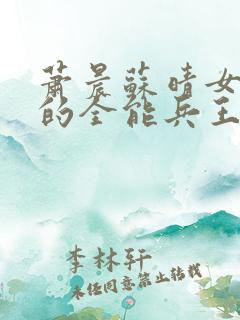 萧晨蘇晴女
的全能兵王
李林轩
未经同意禁止转载